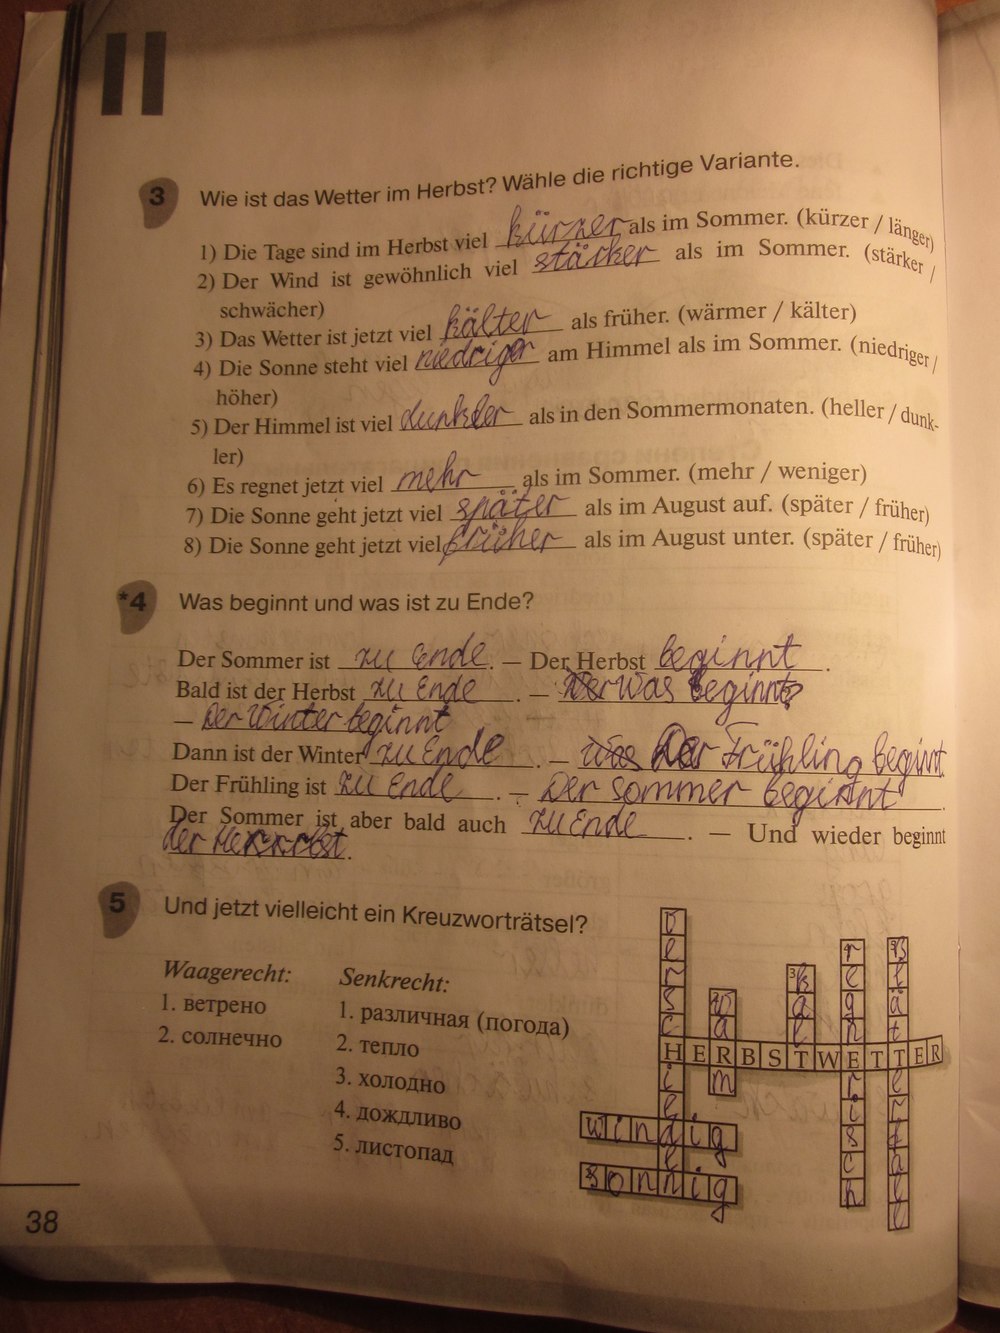 II
3 Wie ist das Wetter im Herbst? Wähle die richtige Variante.
1) Die Tage sind im Herbst viel kürzer als im Sommer. (kürzer / länger)
2) Der Wind ist gewöhnlich viel stärker als im Sommer. (stärker /
schwächer)
3) Das Wetter ist jetzt viel kälter als früher. (wärmer / kälter)
4) Die Sonne steht viel niedriger am Himmel als im Sommer. (niedriger /
höher)
5) Der Himmel ist viel dunkler als in den Sommermonaten. (heller / dunk-
ler)
6) Es regnet jetzt viel mehr als im Sommer. (mehr / weniger)
7) Die Sonne geht jetzt viel später als im August auf. (später / früher)
8) Die Sonne geht jetzt viel früher als im August unter. (später / früher)
*4 Was beginnt und was ist zu Ende?
Der Sommer ist zu Ende. – Der Herbst beginnt.
Bald ist der Herbst zu Ende – Was beginnt?
– Der Winter beginnt
Dann ist der Winter zu Ende. – Der Frühling beginnt.
Der Frühling ist zu Ende. – Der Sommer beginnt.
Der Sommer ist aber bald auch zu Ende. – Und wieder beginnt
der Herbst.
5 Und jetzt vielleicht ein Kreuzworträtsel?
Waagerecht:
1. ветрено
2. солнечно
Senkrecht:
1. различная (погода)
2. тепло
3. холодно
4. дождливо
5. листопад
HERBSTWETTER
verschieden
warm
kalt
regnerisch
Blätterfall
windig
sonnig
38